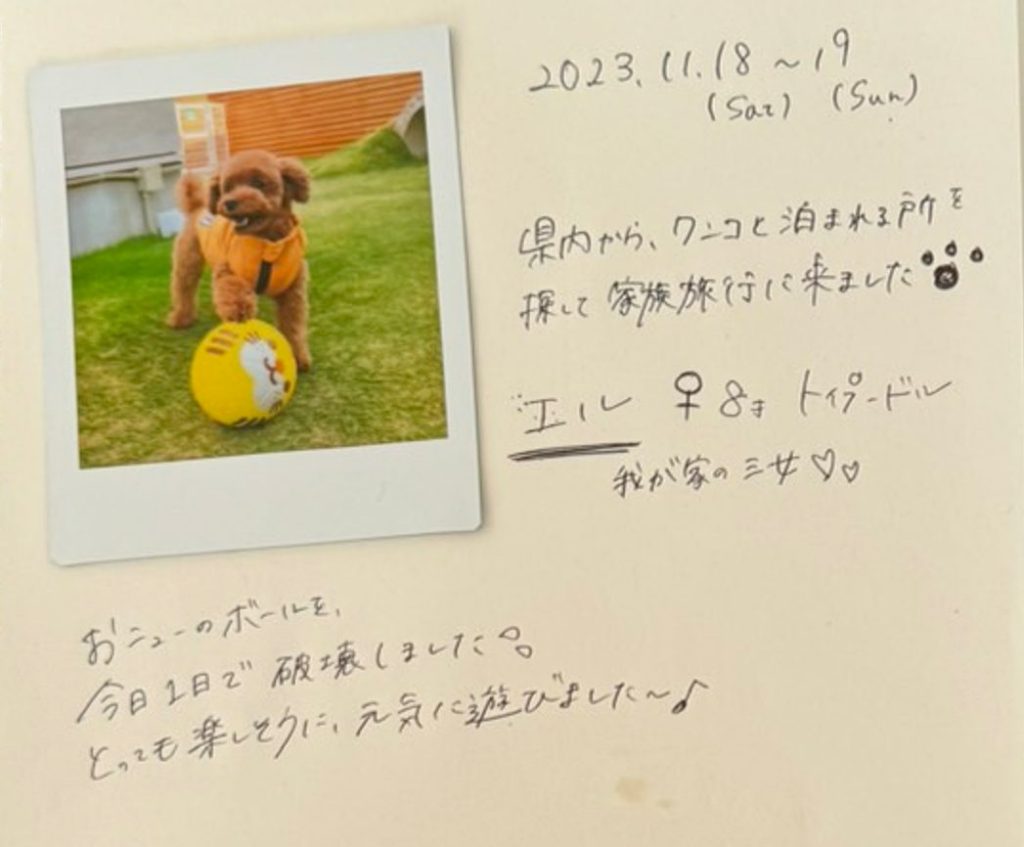 2023.11.18〜19
(Sat) (Sun)
県内から、ワンコと泊まれる所を
探して家族旅行に来ました
エル ♀ 8才 トイプードル
我が家の三女♡♡
おニューのボールを、
今日1日で破壊しました
とっても楽しそうに、元気に遊びました〜♪